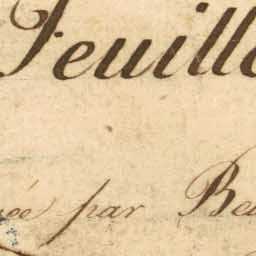 Feuill
ée par Be